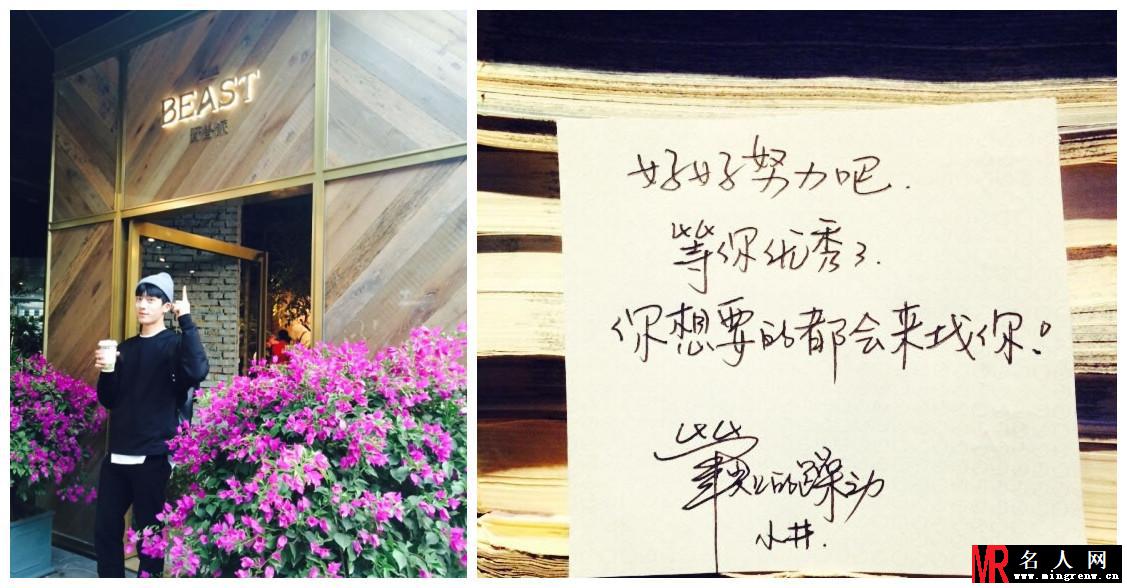 BEAST
好好努力吧.
等你优秀了.
你想要的都会来找你!
的躁动
小井.
MR 名人网
www.mingrenw.cn